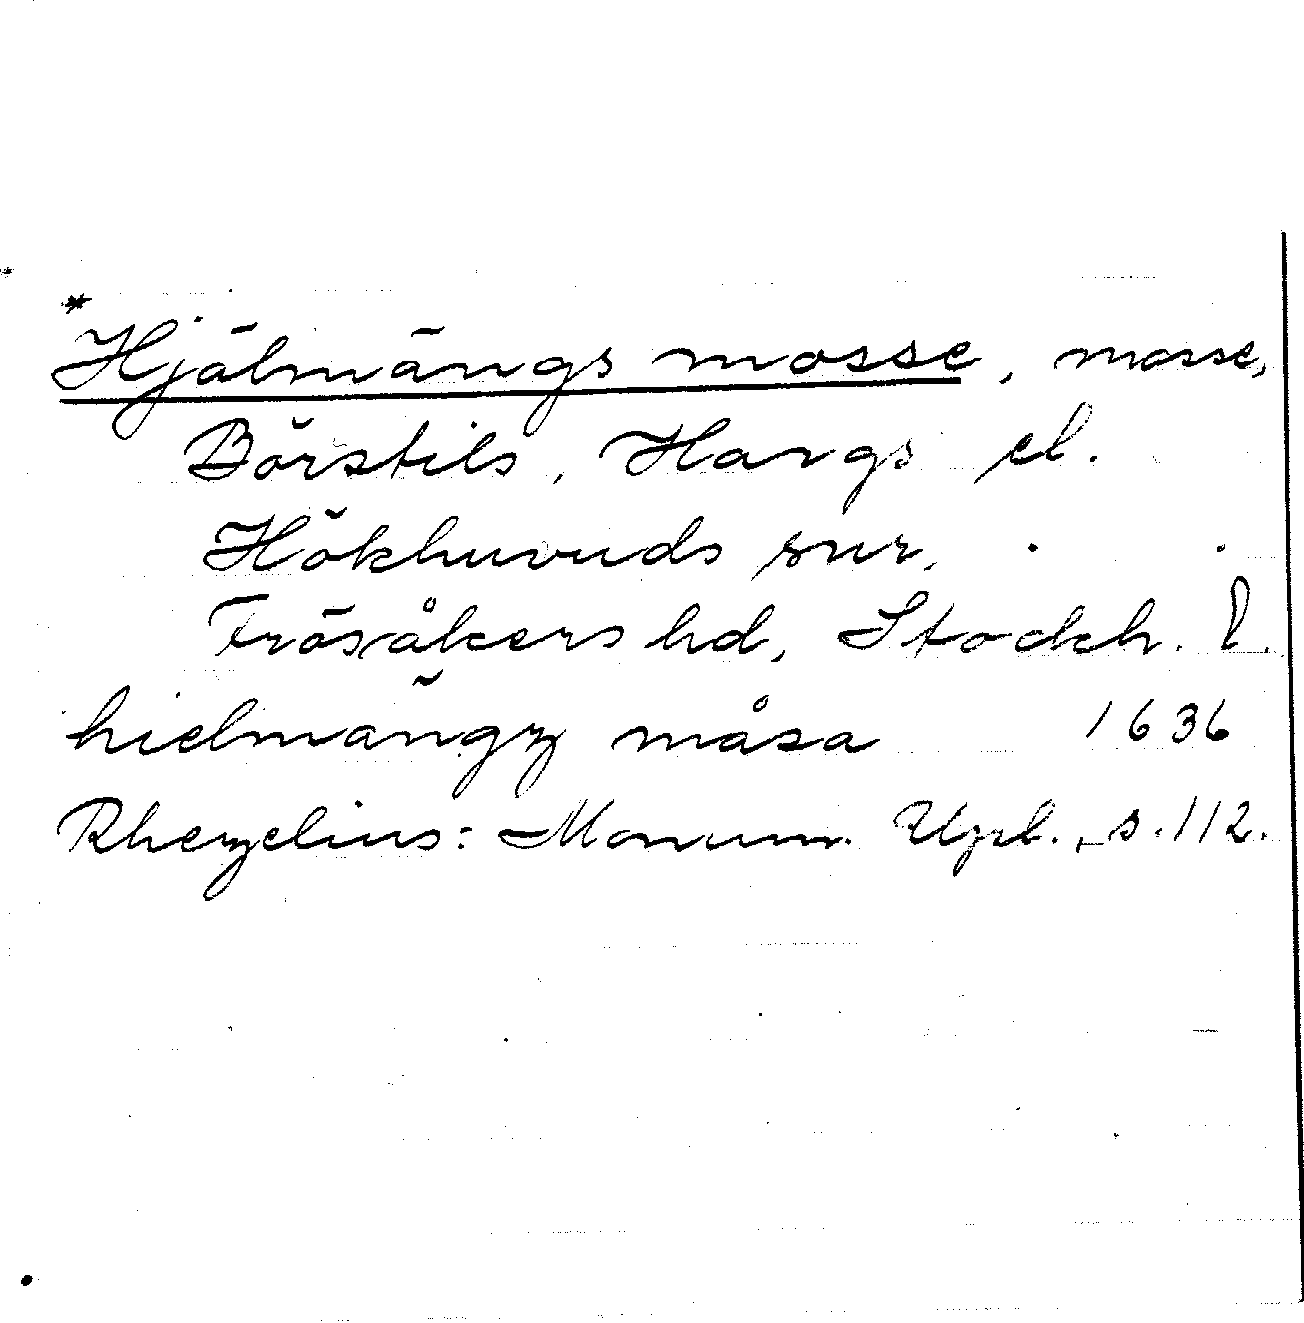 *Hjälmängs mosse, mosse,
Börstils, Hargs el.
Hökhuvuds snr,
Frösåkers hd, Stockh. l.
hielmängz måsa 1636
Rhezelius: Monum. Upl., s. 112.